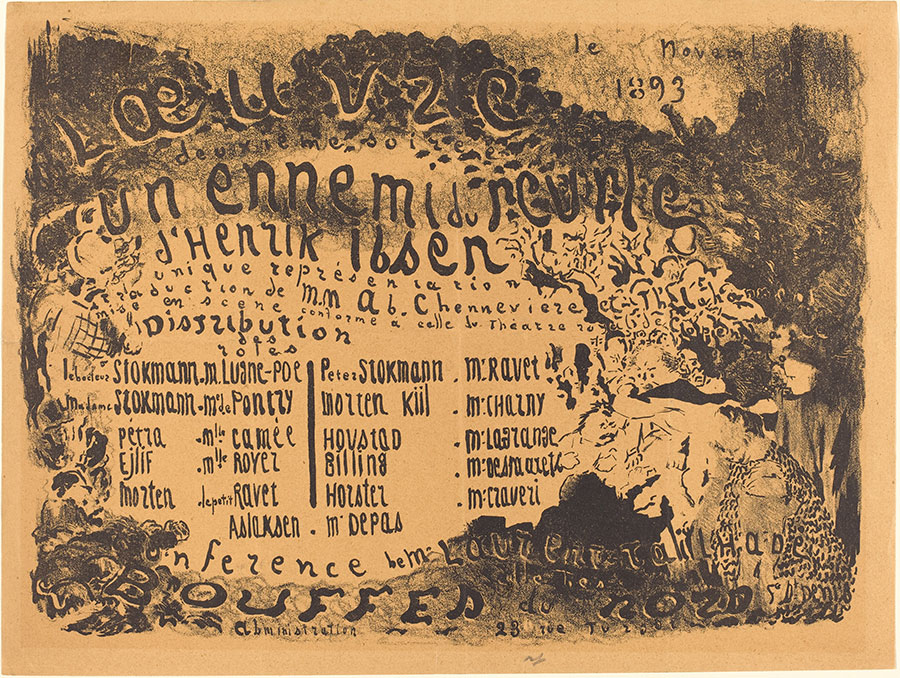 le Novemb
1893
LŒUVRE
deuxième soirée
un ennemi du peuple
d'Henrik Ibsen
unique représentation
traduction de MM Ab. Chenneviere et
mise en scene conforme à celle du Théatre royal de
Distribution
des
rôles
le docteur Stokmann. M. Lugne-Poe
Madame Stokmann. Me de Pontry
Petra . Mlle Camée
Ejlif . Mlle Royer
Morten . le petit Ravet
Peter Stokmann . Mr Ravet
Morten Kiil . Mr Charny
Hovstad . Mr Lagrange
Billing . Mr
Horster . Mr Craveri
Aslaksen . Mr Depas
conference de Mr Laurent Tailhade
Bouffes du Nord
St Denis
administration 23 rue